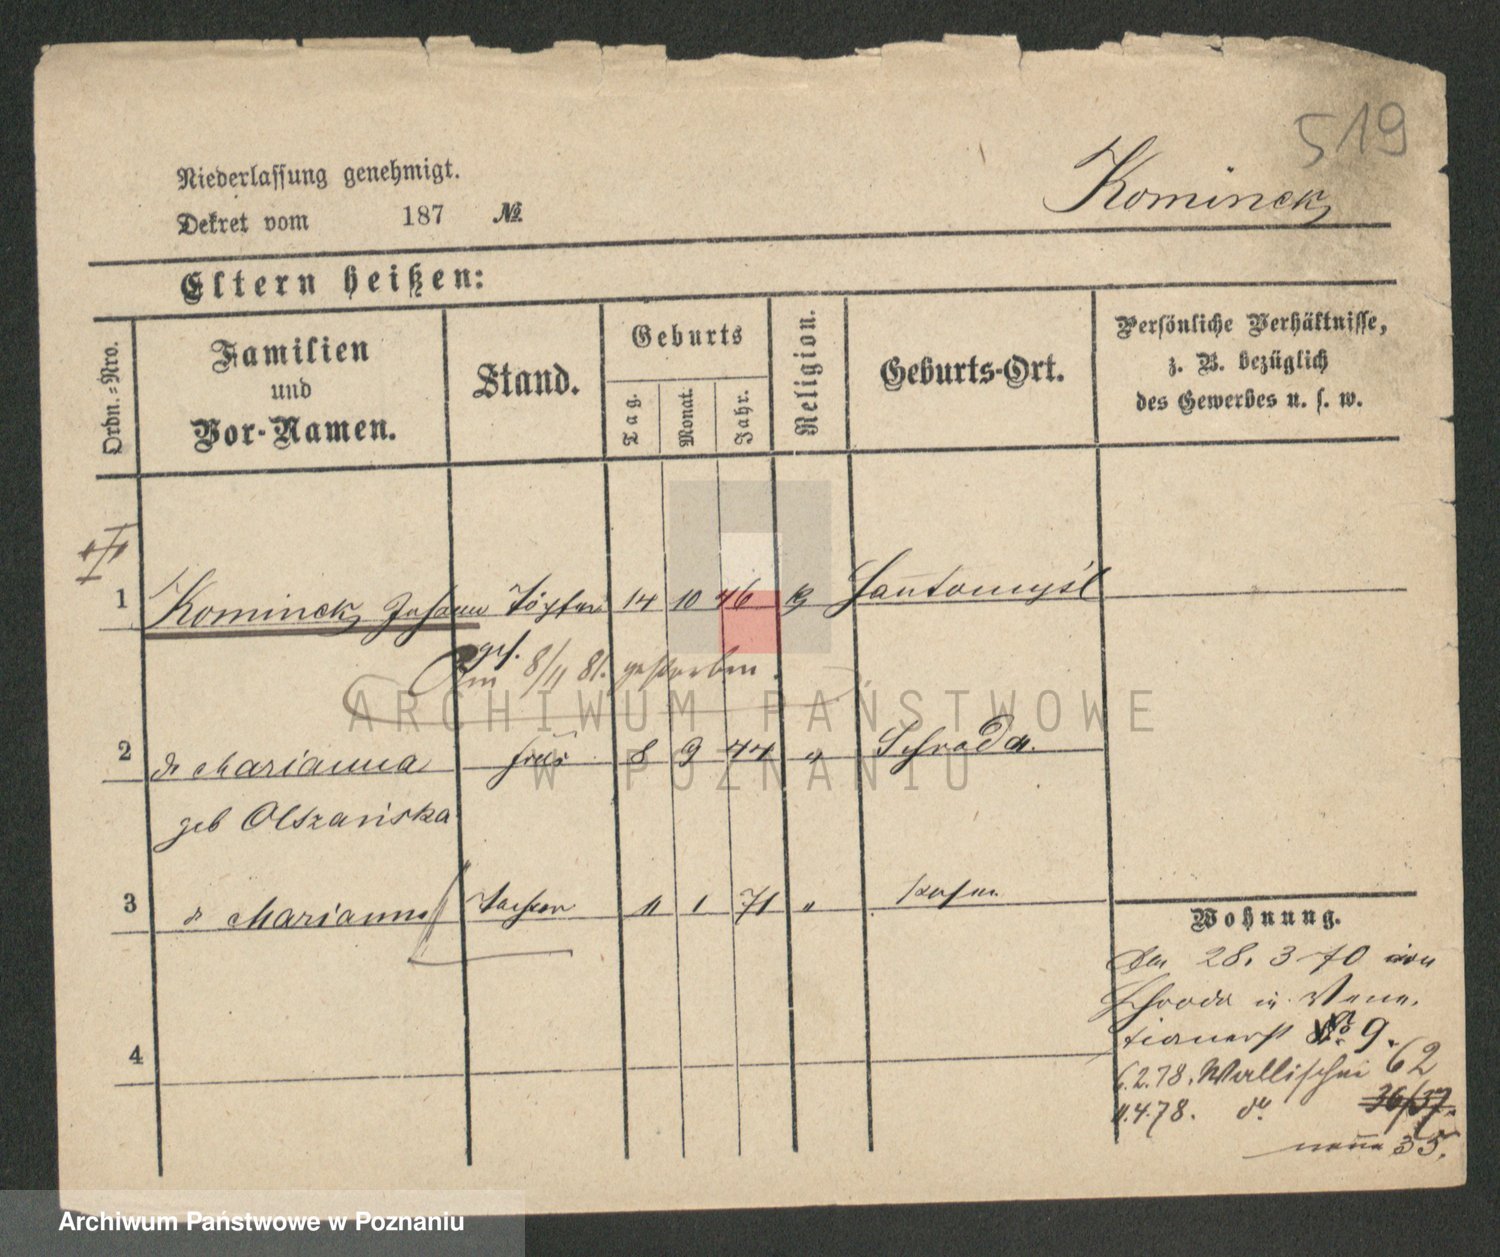 519
Niederlassung genehmigt.
Dekret vom 187 №
Kominek
Eltern heißen:
Ordn.-Nro.
Familien
und
Vor-Namen.
Stand.
Geburts
Tag.
Monat.
Jahr.
Religion.
Geburts-Ort.
Persönliche Verhältnisse,
z. B. bezüglich
des Gewerbes u. s. w.
1 Kominek Johann Töpfer 14 10 46 k Santomyśl
gest.
8/11 81. gestorben.
2 Marianna frau 8 9 44 " Schroda.
geb Olszańska
3 Marianna Tochter 11 1 71 " Posen
4
Wohnung.
Den 28. 3 70 von
Schroda in Vene-
tianerst No 9.
6.2.78. Wallischei 62
11.4.78. do 36/37.
35.
ARCHIWUM PAŃSTWOWE
W POZNANIU
Archiwum Państwowe w Poznaniu